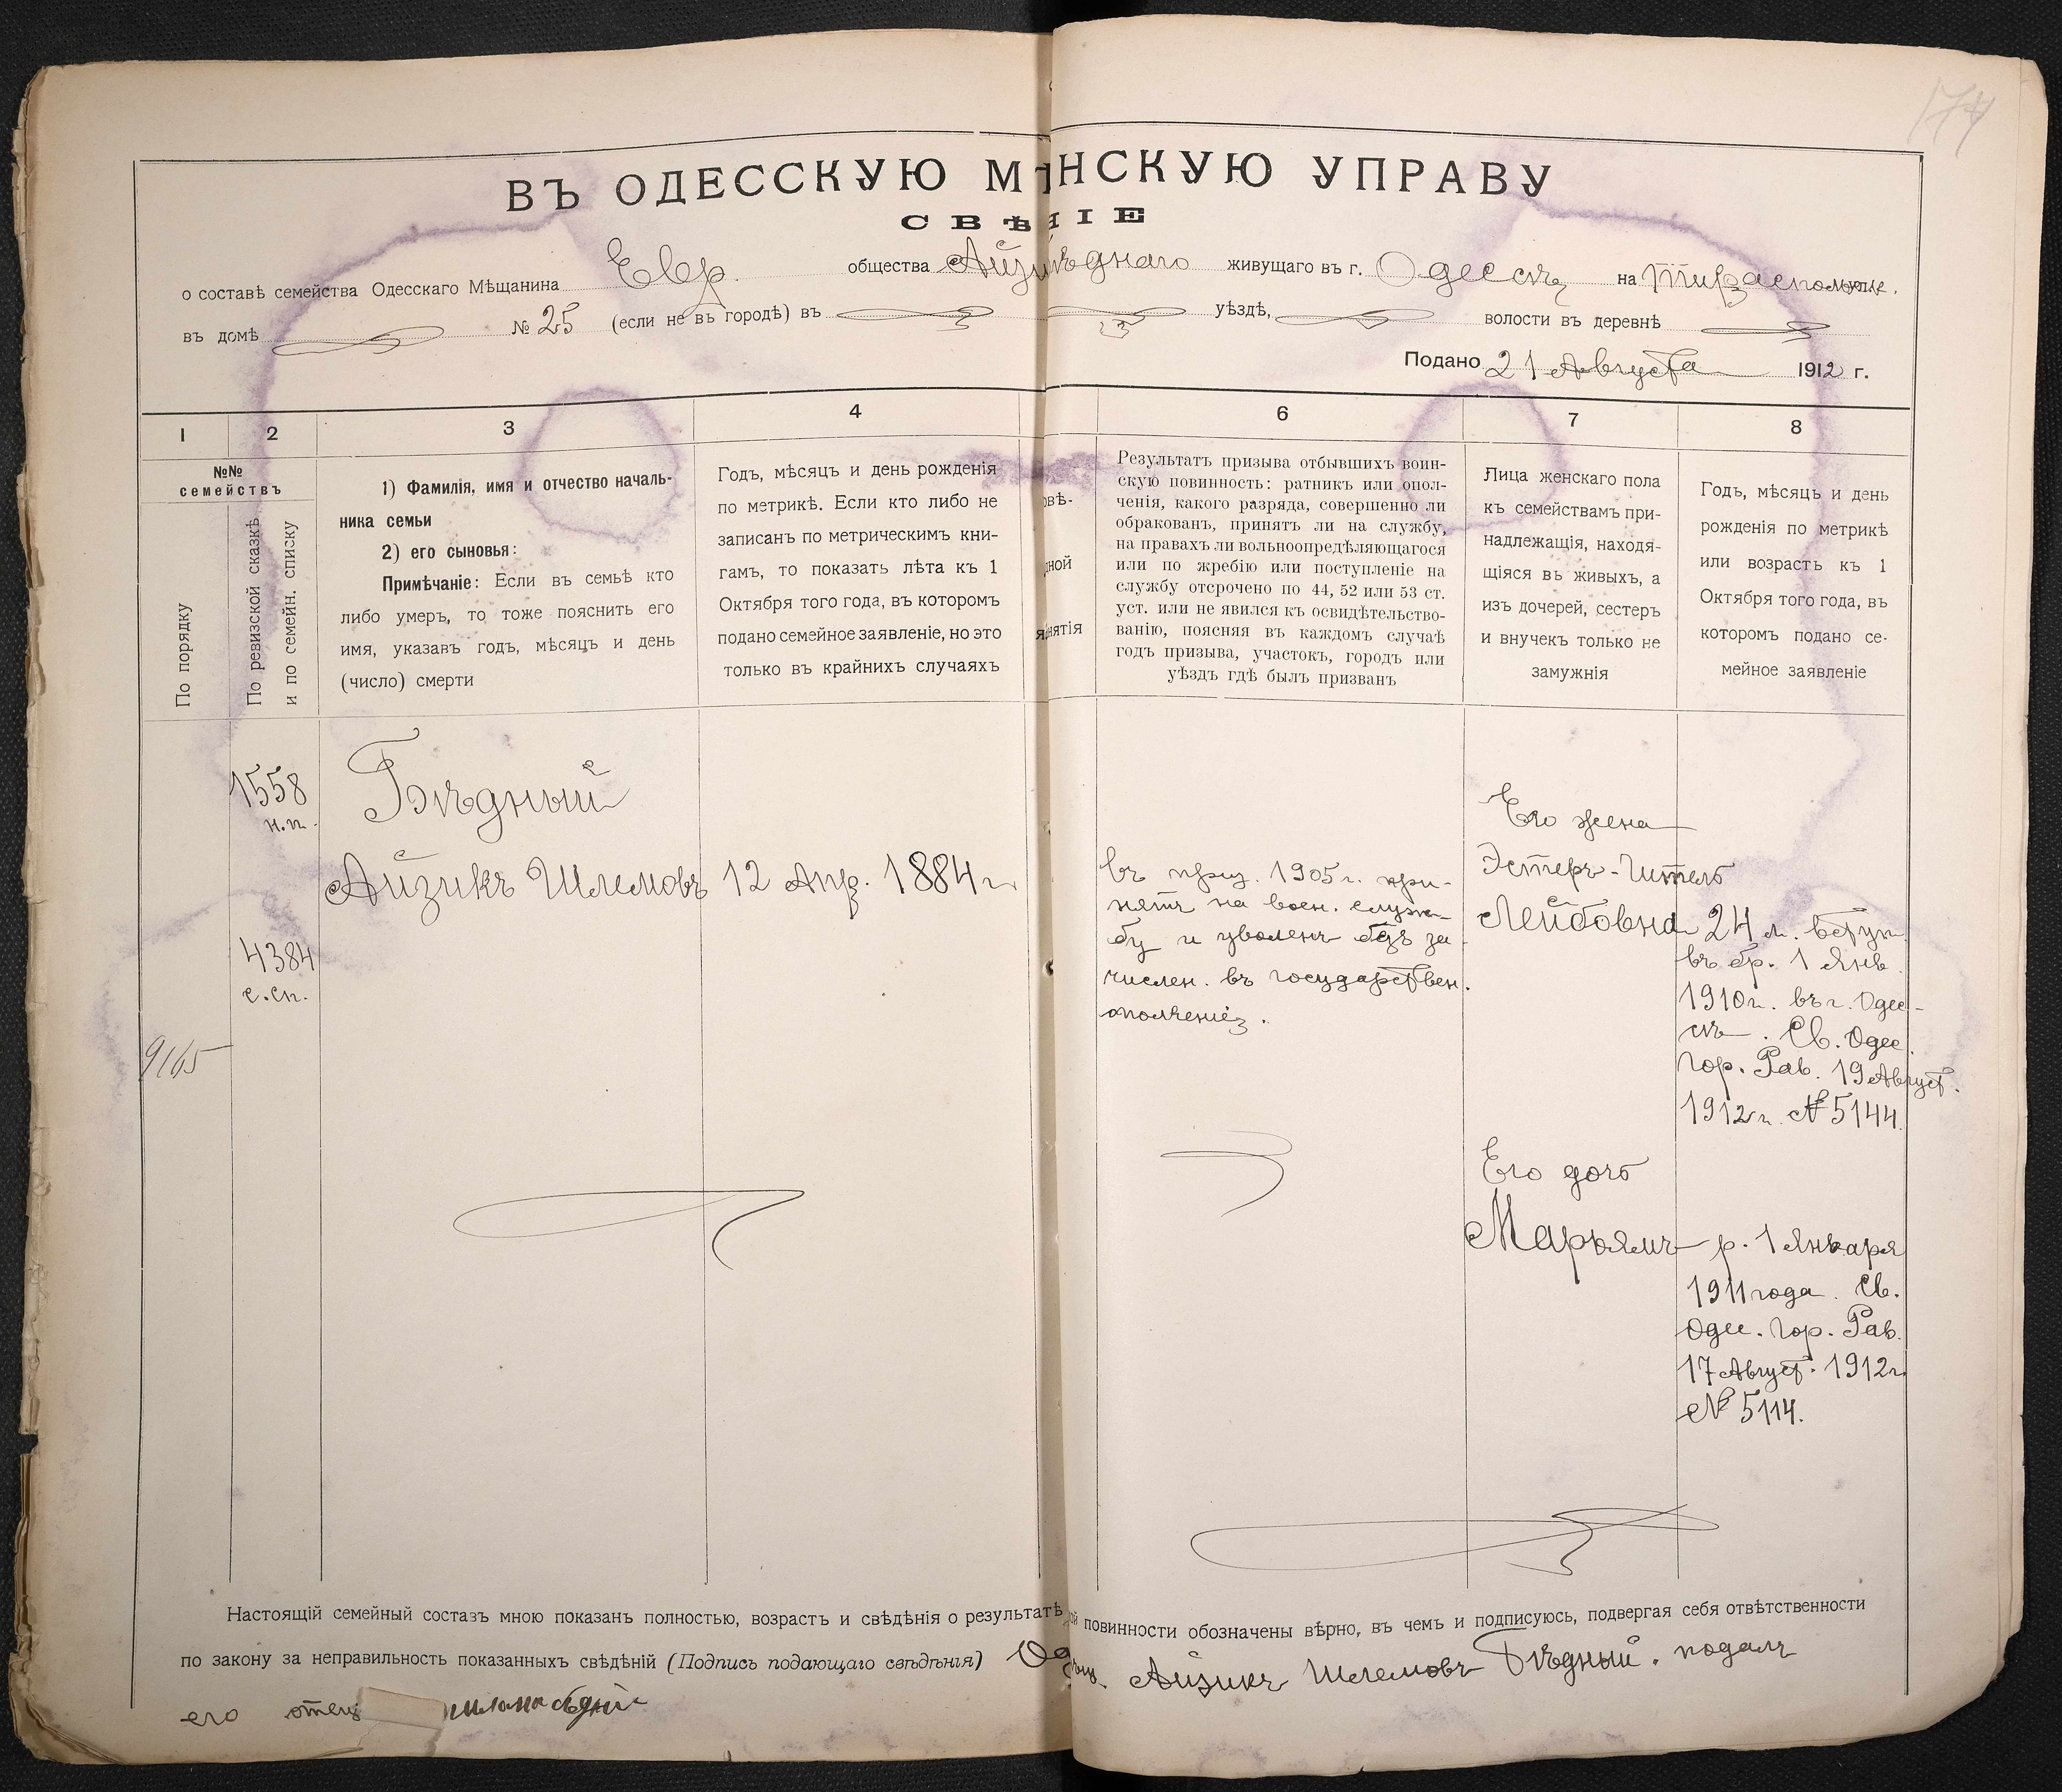 174
ВЪ ОДЕССКУЮ М НСКУЮ УПРАВУ
СВѢ НІЕ
о составѣ семейства Одесскаго Мѣщанина Евр. общества Айзи ѣднаго живущаго въ г. Одессѣ на Тираспольск. ул.
въ домѣ № 25 (если не въ городѣ) въ уѣздѣ, волости въ деревнѣ
Подано 21 Августа 1912 г.
1 2 3 4 6 7 8
№№
семействъ
По порядку
По ревизской сказкѣ
и по семейн. списку
1) Фамилія, имя и отчество началь-
ника семьи
2) его сыновья:
Примѣчаніе: Если въ семьѣ кто
либо умеръ, то тоже пояснить его
имя, указавъ годъ, мѣсяцъ и день
(число) смерти
Годъ, мѣсяцъ и день рожденія
по метрикѣ. Если кто либо не
записанъ по метрическимъ кни-
гамъ, то показать лѣта къ 1
Октября того года, въ которомъ
подано семейное заявленіе, но это
только въ крайнихъ случаяхъ
овѣ-
дной
нятія
Результатъ призыва отбывшихъ воин-
скую повинность: ратникъ или опол-
ченія, какого разряда, совершенно ли
обракованъ, принятъ ли на службу,
на правахъ ли вольноопредѣляющагося
или по жребію или поступленіе на
службу отсрочено по 44, 52 или 53 ст.
уст. или не явился къ освидѣтельство-
ванію, поясняя въ каждомъ случаѣ
годъ призыва, участокъ, городъ или
уѣздъ гдѣ былъ призванъ
Лица женскаго пола
къ семействамъ при-
надлежащія, находя-
щіяся въ живыхъ, а
изъ дочерей, сестеръ
и внучекъ только не
замужнія
Годъ, мѣсяцъ и день
рожденія по метрикѣ
или возрастъ къ 1
Октября того года, въ
которомъ подано се-
мейное заявленіе
9165
1558
н.п.
4384
с.сп.
Бѣдный
Айзикъ Шлемовъ 12 Апр. 1884 г.
въ приз. 1905 г. при-
нятъ на воен. служ-
бу и уволенъ безъ за-
числен. въ государствен.
ополченіе.
Его жена
Эстеръ-Гитель
Лейбовна 24 л. вступ.
въ бр. 1 Янв.
1910 г. въ г. Одес-
сѣ. Св. Одес.
Гор. Рав. 19 Август.
1912 г. № 5144.
Его дочь
Марьямъ р. 1 Января
1911 года. Св.
Одес. Гор. Рав.
17 Август. 1912 г.
№ 5114.
Настоящій семейный составъ мною показанъ полностью, возрастъ и свѣдѣнія о результатѣ ой повинности обозначены вѣрно, въ чемъ и подписуюсь, подвергая себя отвѣтственности
по закону за неправильность показанныхъ свѣдѣній (Подпись подающаго свѣдѣнія) Айзикъ Шлемовъ Бѣдный. подалъ
его отецъ